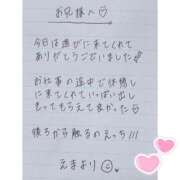 お兄様へ♡
今日は遊びに来てくれて
ありがとうございました
お仕事の途中で休憩し
に来てくれていっぱい出し
きってもらえて良かった☺
後ろから触るのえっち!!!
えまより☺